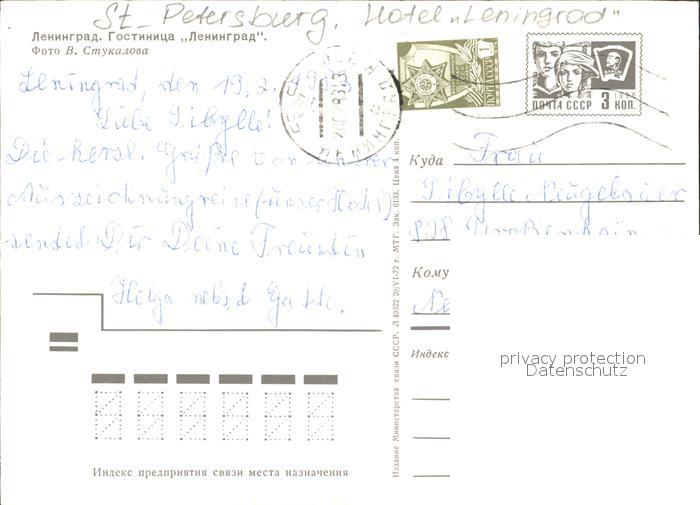 St. Petersburg. Hotel „Leningrad"
Ленинград. Гостиница „Ленинград".
Фото В. Стукалова
Leningrad, den 19.2.
Liebe Sibylle!
Die herzl. Grüße von
Auszeichnungsreise (unser Hotel)
sendet Dir Deine Freundin
Helga nebst
ПОЧТА СССР 3 КОП.
1966
Куда Frau
Sibylle Neugebauer
Großenhain
Кому
Ne
Индекс
privacy protection
Datenschutz
Издание Министерства связи СССР. Л 49322 20/VI-72 г. МТГ. Зак. 6133. Цена 4 коп.
Индекс предприятия связи места назначения